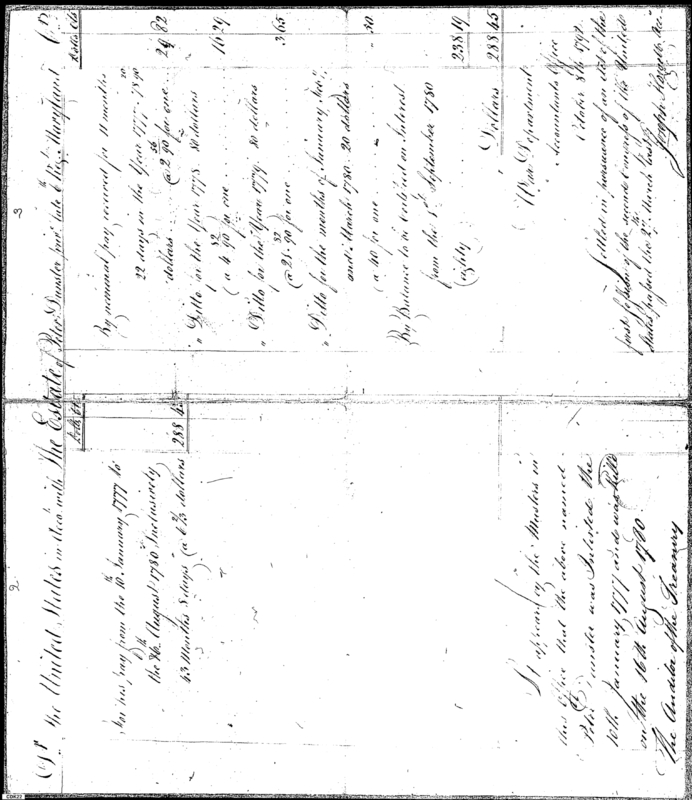 2
Dr The United States in Acct. with The Estate of Peter Dunster priv. late 6 Regt. Maryland Cr.
Dolls Cts
For his pay from the 10th January 1777 to
the 16th August 1780 Inclusively
43 Months 8 days @ 6 2/3 dollars
288 45
It appears by the Musters in
this Office that the above named
Peter Dunster was Inlisted the
10th January 1777 and was kill'd
on the 16th August 1780
The Auditor of the Treasury
3
Dolls Cts
By nominal pay received for 11 months
22 days in the Year 1777
dollars for one 29 82
" Ditto in the Year 1778 80 dollars
for one 16 29
" Ditto for the Year 1779 80 dollars
for one 3 65
" Ditto for the months of January
and March 1780 20 dollars
@ 40 for one " 50
By Balance to be Carried on Interest
from the September 1780
eighty 238 19
Dollars 288 45
War Department
Accountants Office
October 8th 1792
Settled in pursuance of an Act of the
first Session of the second Congress of the United
States passed the 27th March last
Joseph Howell
CDK22